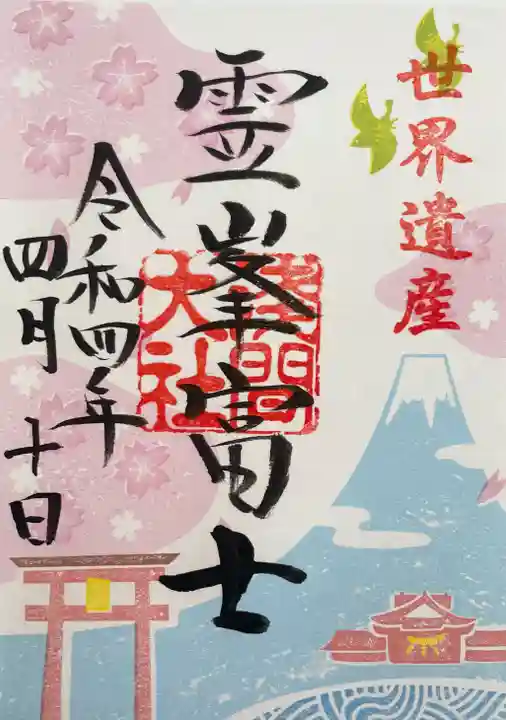 世界遺産
霊峯富士
浅間
大社
令和四年
四月十日